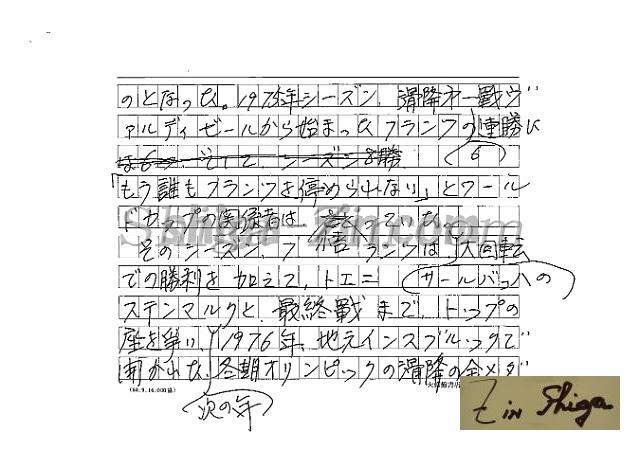 のとなった。1975年シーズン、滑降第一戦ヴ
ァルディゼールから始まったフランツの連勝は
6
そして、シーズン8勝
「もう誰もフランツを停められない」とワール
ドカップの関係者は、
そのシーズン、フランツは大回転
での勝利を加えて、トエニ
サールバッハの
ステンマルクと、最終戦まで、トップの
座を争い、1976年、地元インスブルックで
開かれた冬期オリンピックの滑降の金メダ
次の年
(60.9.10,000冊)
Shiga-Zin.com
Z in Shiga